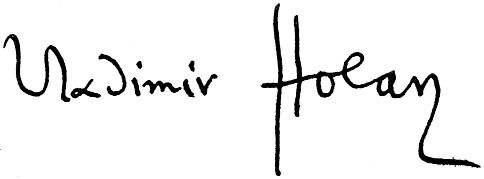 Vladimir Holan